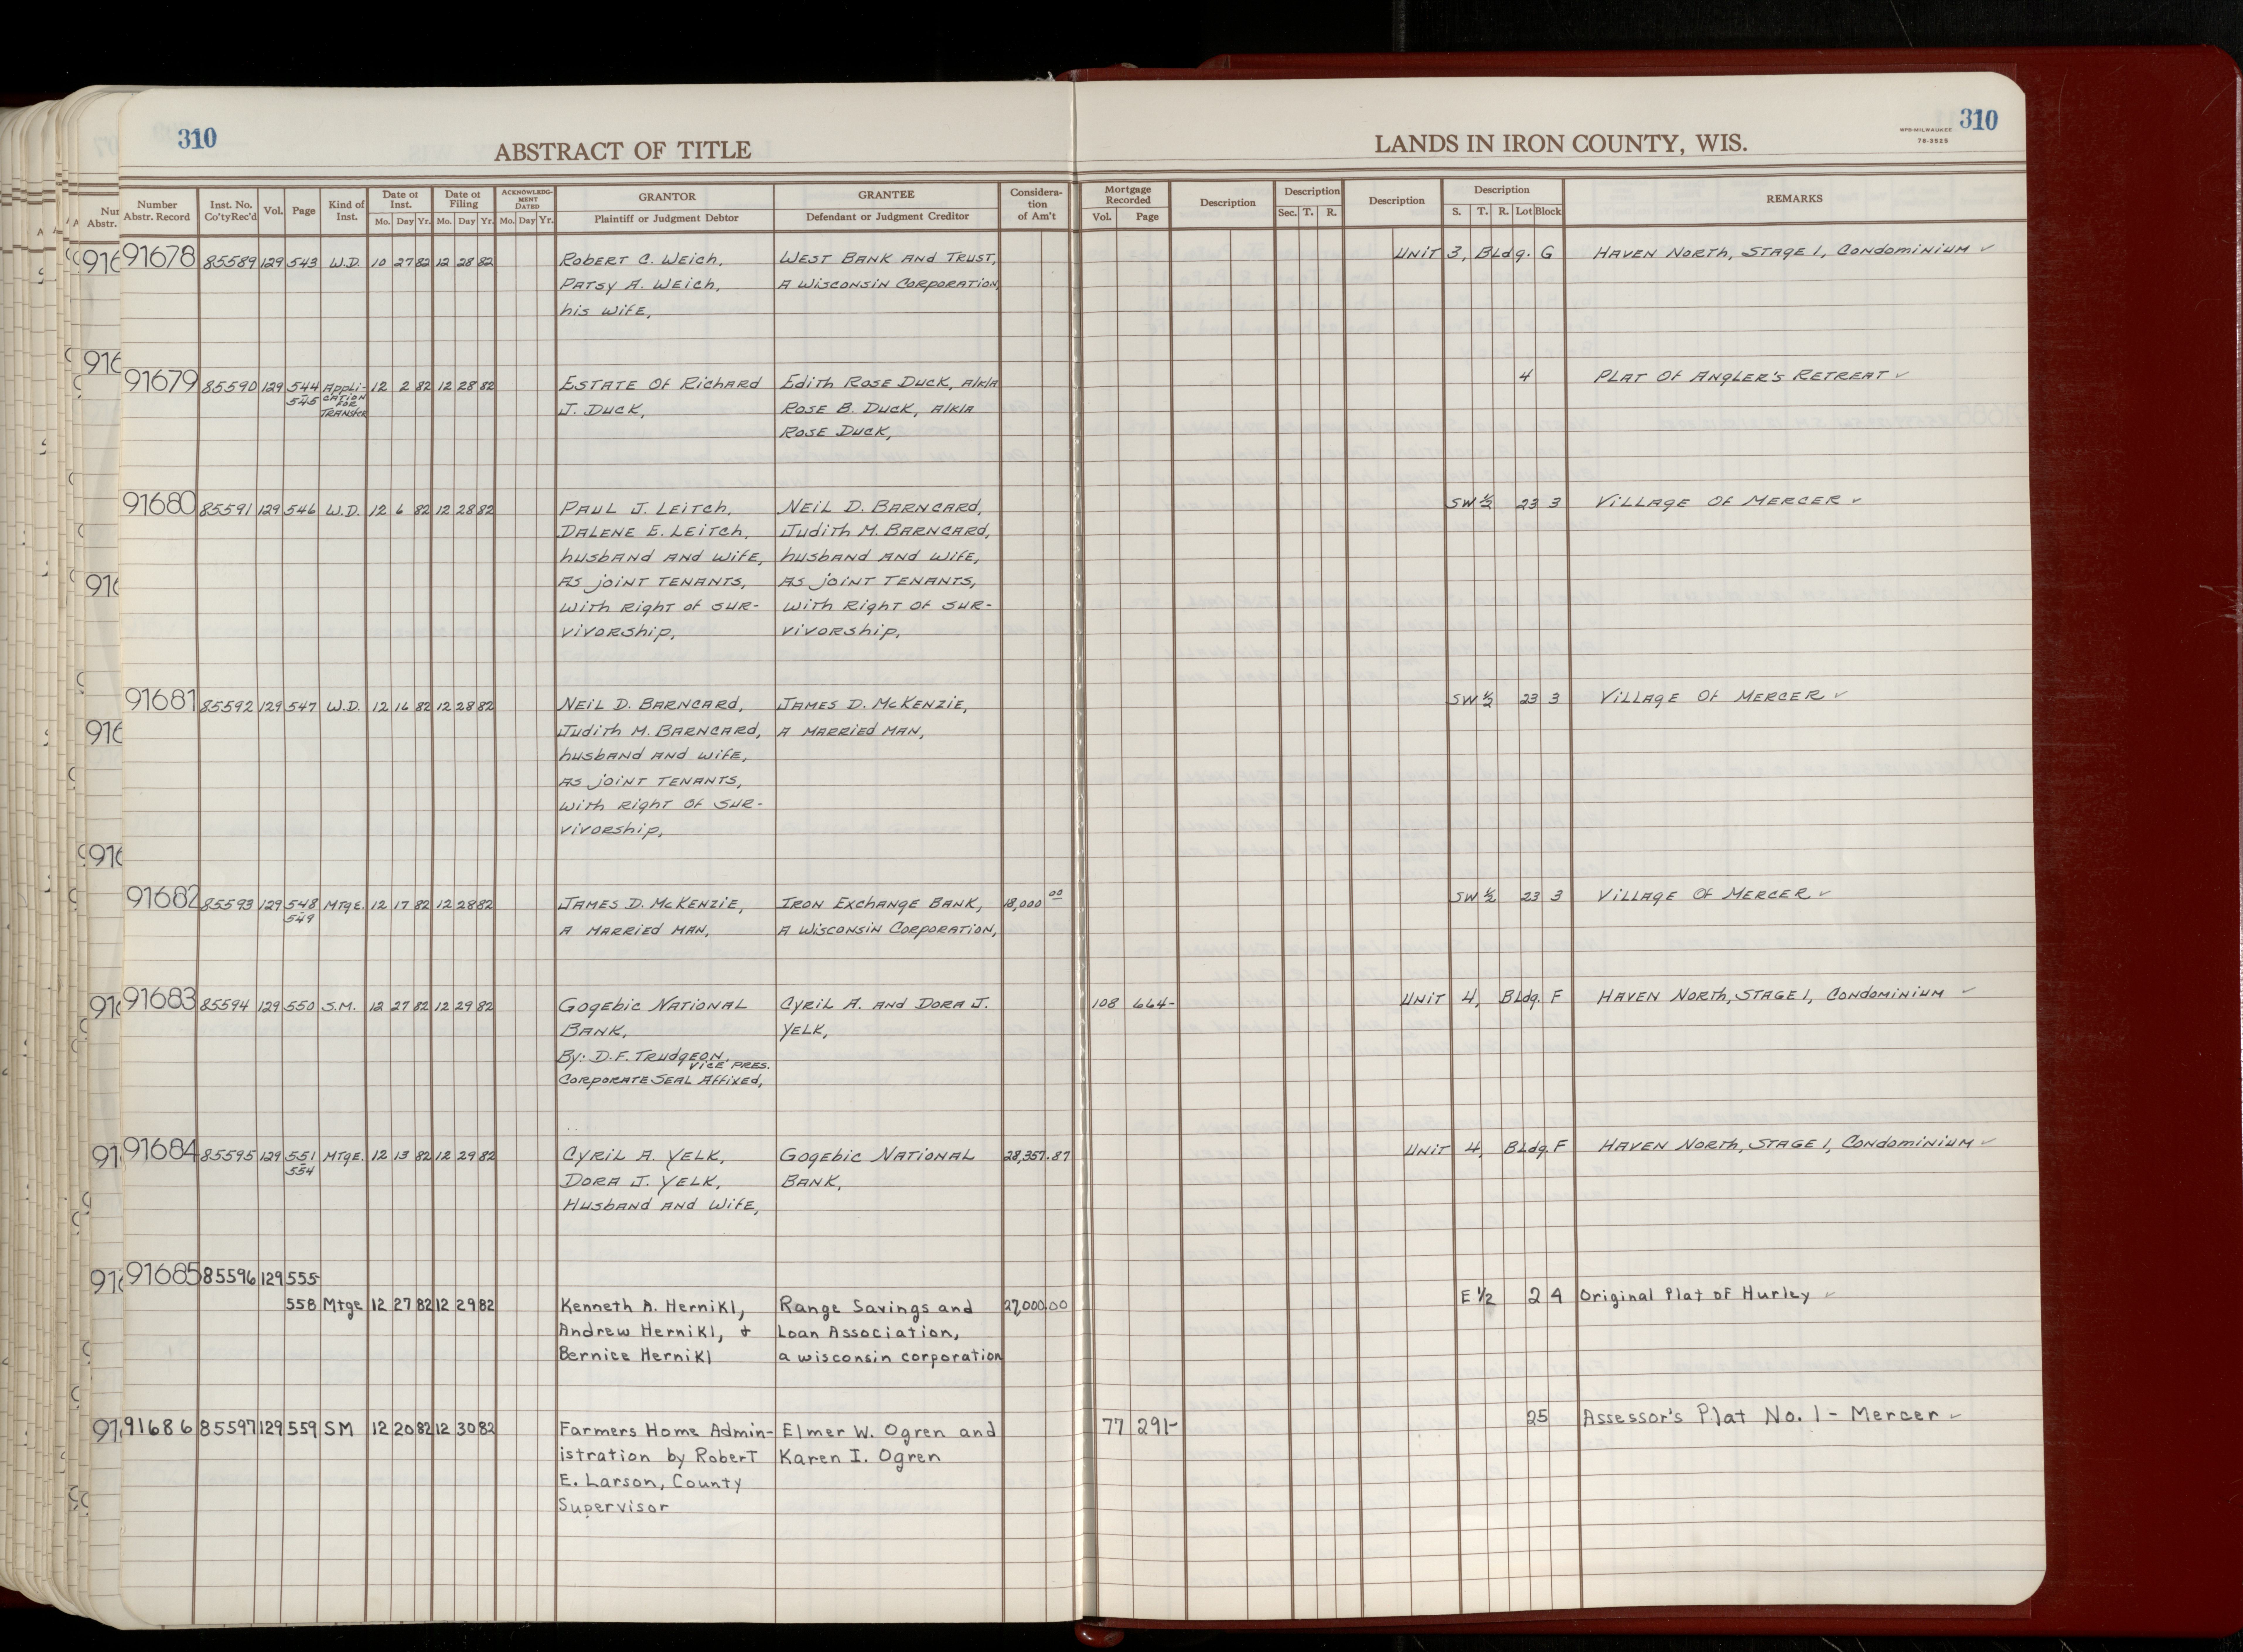 310
ABSTRACT OF TITLE
LANDS IN IRON COUNTY, WIS.
WPB-MILWAUKEE
78-3525
310
Number Abstr. Record Inst. No. Co'ty Rec'd Vol. Page Kind of Inst. Date of Inst. Mo. Day Yr. Date of Filing Mo. Day Yr. ACKNOWLEDGMENT DATED Mo. Day Yr. GRANTOR Plaintiff or Judgment Debtor GRANTEE Defendant or Judgment Creditor Consideration of Am't Mortgage Recorded Vol. Page Description Description Sec. T. R. Description Description S. T. R. Lot Block REMARKS
91678 85589 129 543 W.D. 10 27 82 12 28 82 Robert C. Weich, West Bank and Trust, Unit 3, Bldg. G Haven North, Stage 1, Condominium ✓
Patsy A. Weich, A Wisconsin Corporation,
his wife,
91679 85590 129 544 Appli- 12 2 82 12 28 82 Estate of Richard Edith Rose Duck, a/k/a 4 Plat of Angler's Retreat ✓
545 cation for Transfer J. Duck, Rose B. Duck, a/k/a
Rose Duck,
91680 85591 129 546 W.D. 12 6 82 12 28 82 Paul J. Leitch, Neil D. Barncard, SW ½ 23 3 Village of Mercer ✓
Dalene E. Leitch, Judith M. Barncard,
husband and wife, husband and wife,
as joint tenants, as joint tenants,
with right of sur- with right of sur-
vivorship, vivorship,
91681 85592 129 547 W.D. 12 16 82 12 28 82 Neil D. Barncard, James D. McKenzie, SW ½ 23 3 Village of Mercer ✓
Judith M. Barncard, a married man,
husband and wife,
as joint tenants,
with right of sur-
vivorship,
91682 85593 129 548 Mtge. 12 17 82 12 28 82 James D. McKenzie, Iron Exchange Bank, 18,000 00 SW ½ 23 3 Village of Mercer ✓
549 a married man, a Wisconsin Corporation,
91683 85594 129 550 S.M. 12 27 82 12 29 82 Gogebic National Cyril A. and Dora J. 108 664- Unit 4, Bldg. F Haven North, Stage 1, Condominium ✓
Bank, Yelk,
By: D.F. Trudgeon,
Vice Pres.
Corporate Seal Affixed,
91684 85595 129 551 Mtge. 12 13 82 12 29 82 Cyril A. Yelk, Gogebic National 28,357.87 Unit 4, Bldg. F Haven North, Stage 1, Condominium ✓
554 Dora J. Yelk, Bank,
Husband and Wife,
91685 85596 129 555-
558 Mtge 12 27 82 12 29 82 Kenneth A. Hernikl, Range Savings and 27,000.00 E ½ 2 4 Original Plat of Hurley ✓
Andrew Hernikl, & Loan Association,
Bernice Hernikl a wisconsin corporation
91686 85597 129 559 SM 12 20 82 12 30 82 Farmers Home Admin- Elmer W. Ogren and 77 291- 25 Assessor's Plat No. 1 - Mercer ✓
istration by Robert Karen I. Ogren
E. Larson, County
Supervisor